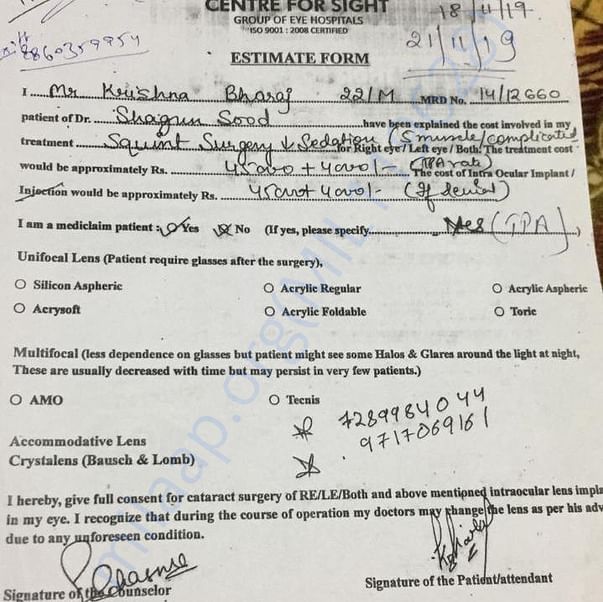 CENTRE FOR SIGHT
GROUP OF EYE HOSPITALS
"ISO 9001 : 2008 CERTIFIED"
18/11/19
8860359954
21/11/19
ESTIMATE FORM
I Mr Krishna Bharaj 22/M MRD No. 14/12660
patient of Dr. Shagun Sood have been explained the cost involved in my
treatment Squint Surgery + Sedation (5 muscle/complicated for Right eye / Left eye / Both. The treatment cost
would be approximately Rs. 45000 + 4000/- (TPA rate) The cost of Intra Ocular Implant /
Injection would be approximately Rs. 45000+4000/- (If denial)
I am a mediclaim patient : Yes No (If yes, please specify Yes (TPA)
Unifocal Lens (Patient require glasses after the surgery),
O Silicon Aspheric O Acrylic Regular O Acrylic Aspheric
O Acrysoft O Acrylic Foldable O Toric
Multifocal (less dependence on glasses but patient might see some Halos & Glares around the light at night,
These are usually decreased with time but may persist in very few patients.)
O AMO O Tecnis
7289984044
9717069161
Accommodative Lens
Crystalens (Bausch & Lomb)
I hereby, give full consent for cataract surgery of RE/LE/Both and above mentioned intraocular lens impla
in my eye. I recognize that during the course of operation my doctors may change the lens as per his adv
due to any unforeseen condition.
Signature of the Counselor
Signature of the Patient/attendant